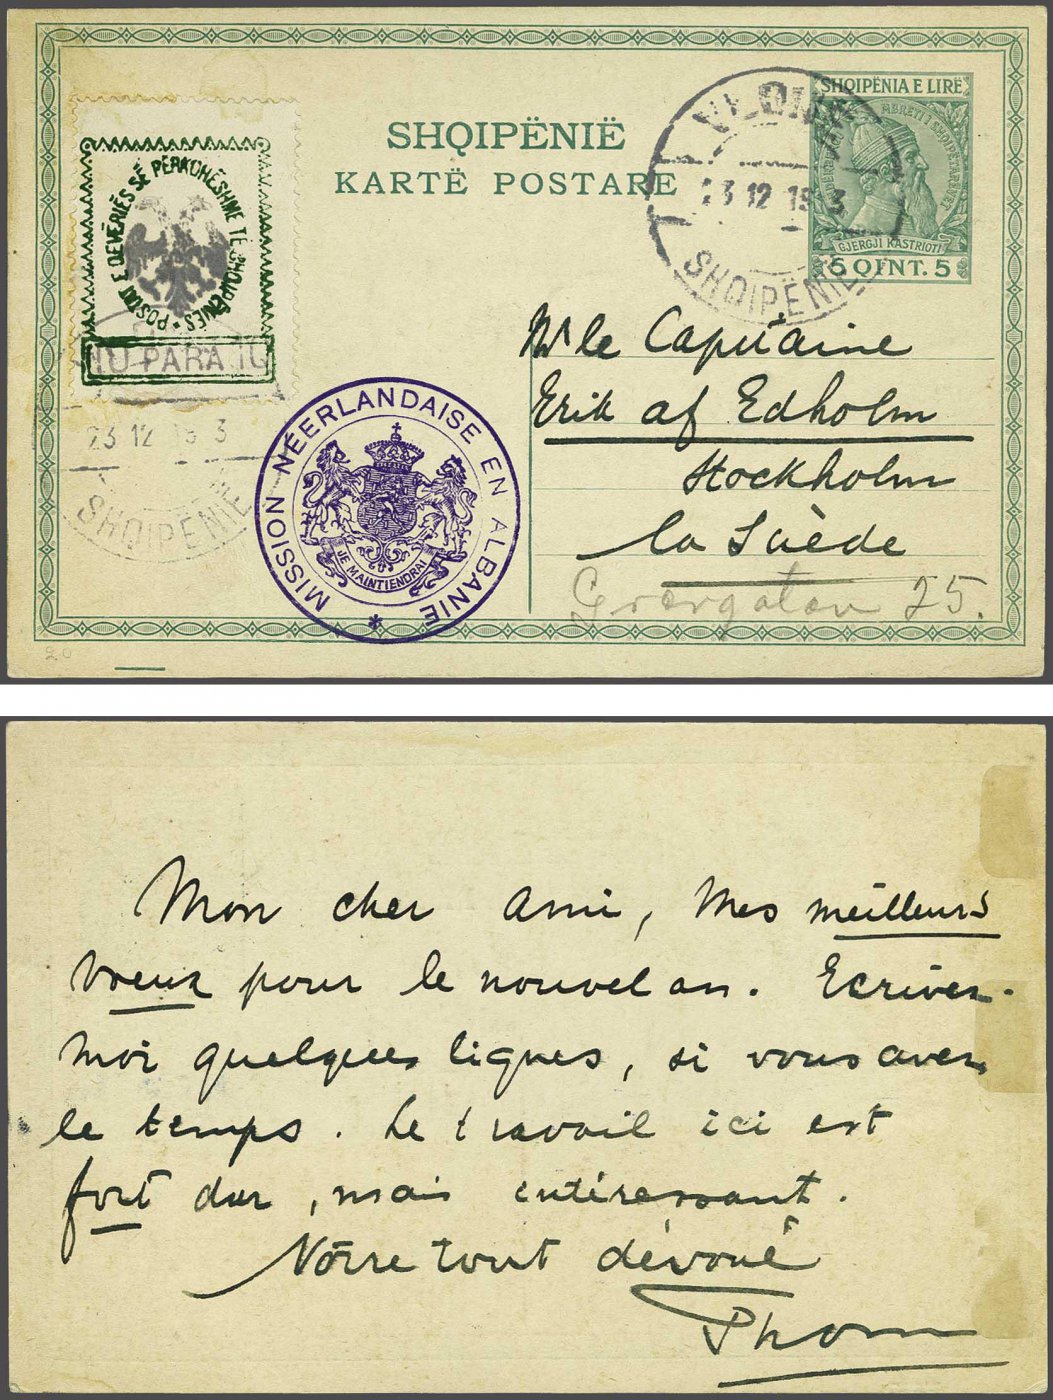 SHQIPËNIË
KARTË POSTARE
POSTAT E QEVERIËS SË PËRKOHËSHME TË SHQIPËNIËS
10 PARA 10
23 12 13
SHQIPËNIE
VLONË
23 12 1913
SHQIPËNIE
SHQIPËNIA E LIRË
MBRETI I SHQIPETARËVET
GJERGJI KASTRIOTI
5 QINT. 5
MISSION NÉERLANDAISE EN ALBANIE
JE MAINTIENDRAI
Mr le Capitaine
Erik af Edholm
Stockholm
la Suède
25.
20
Mon cher Ami, Mes meilleurs
voeux pour le nouvel an. Ecrivez-
moi quelques lignes, si vous avez
le temps. Le travail ici est
fort dur, mais intéressant.
Vôtre tout dévoué
Thom